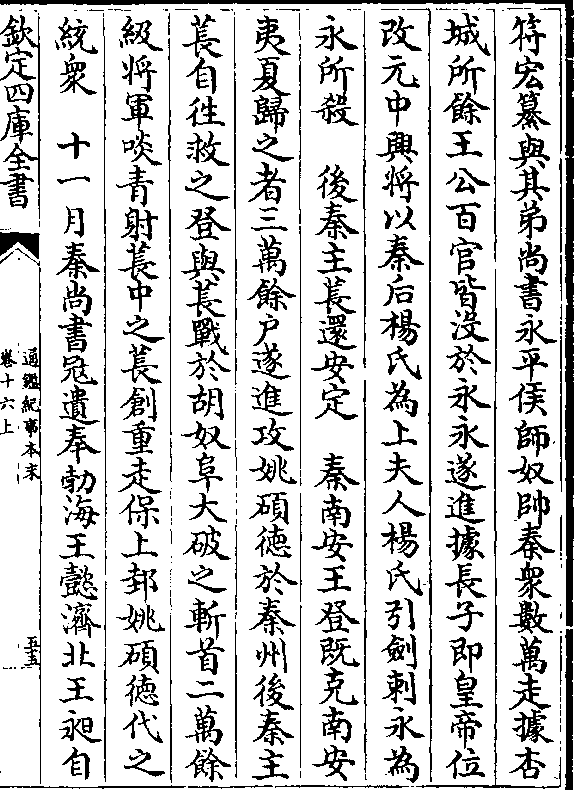 符宏纂與其弟尚書永平侯師奴帥秦衆數萬走據杏
城所餘王公百官皆沒於永永遂進據長子即皇帝位
改元中興將以秦后楊氏為上夫人楊氏引劍刺永為
永所殺　後秦主萇還安定　秦南安王登既克南安
夷夏歸之者三萬餘户遂進攻姚碩德於秦州後秦主
萇自往救之登與萇戰於胡奴阜大破之斬首二萬餘
級將軍啖青射萇中之萇創重走保上邽姚碩德代之
統衆　十一月秦尚書寇遺奉勃海王懿濟北王昶自
欽定四庫全書
通鑑紀事本末
卷十六上
五五